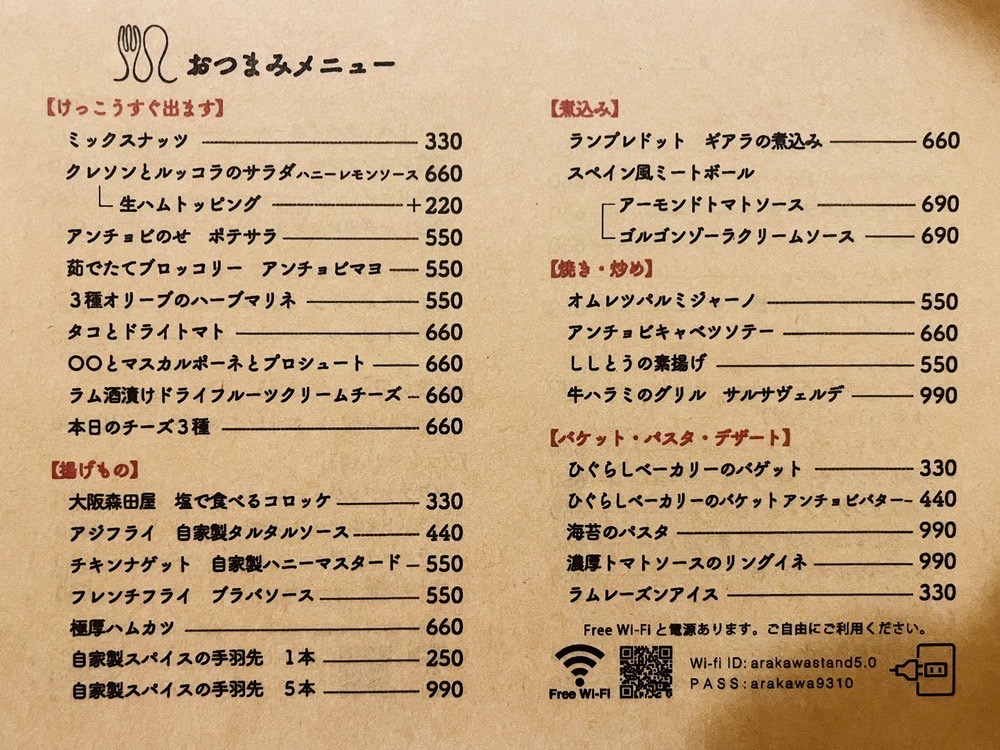 おつまみメニュー
【けっこうすぐ出ます】
ミックスナッツ 330
クレソンとルッコラのサラダハニーレモンソース 660
生ハムトッピング +220
アンチョビのせ ポテサラ 550
茹でたてブロッコリー アンチョビマヨ 550
3種オリーブのハーブマリネ 550
タコとドライトマト 660
〇〇とマスカルポーネとプロシュート 660
ラム酒漬けドライフルーツクリームチーズ 660
本日のチーズ3種 660
【揚げもの】
大阪森田屋 塩で食べるコロッケ 330
アジフライ 自家製タルタルソース 440
チキンナゲット 自家製ハニーマスタード 550
フレンチフライ ブラバソース 550
極厚ハムカツ 660
自家製スパイスの手羽先 1本 250
自家製スパイスの手羽先 5本 990
【煮込み】
ランプレドット ギアラの煮込み 660
スペイン風ミートボール
アーモンドトマトソース 690
ゴルゴンゾーラクリームソース 690
【焼き・炒め】
オムレツパルミジャーノ 550
アンチョビキャベツソテー 660
ししとうの素揚げ 550
牛ハラミのグリル サルサヴェルデ 990
【バケット・パスタ・デザート】
ひぐらしベーカリーのバゲット 330
ひぐらしベーカリーのバケットアンチョビバター 440
海苔のパスタ 990
濃厚トマトソースのリングイネ 990
ラムレーズンアイス 330
Free Wi-Fiと電源あります。ご自由にご利用ください。
Free Wi-Fi
Wi-fi ID: arakawastand5.0
PASS: arakawa9310